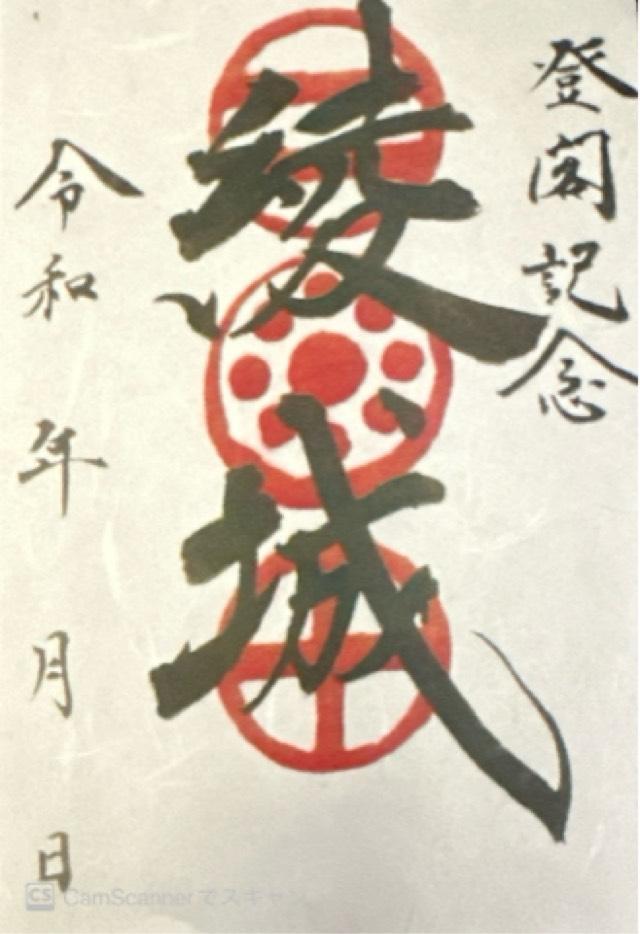 登閣記念
綾城
令和 年 月 日
CS CamScannerでスキャン